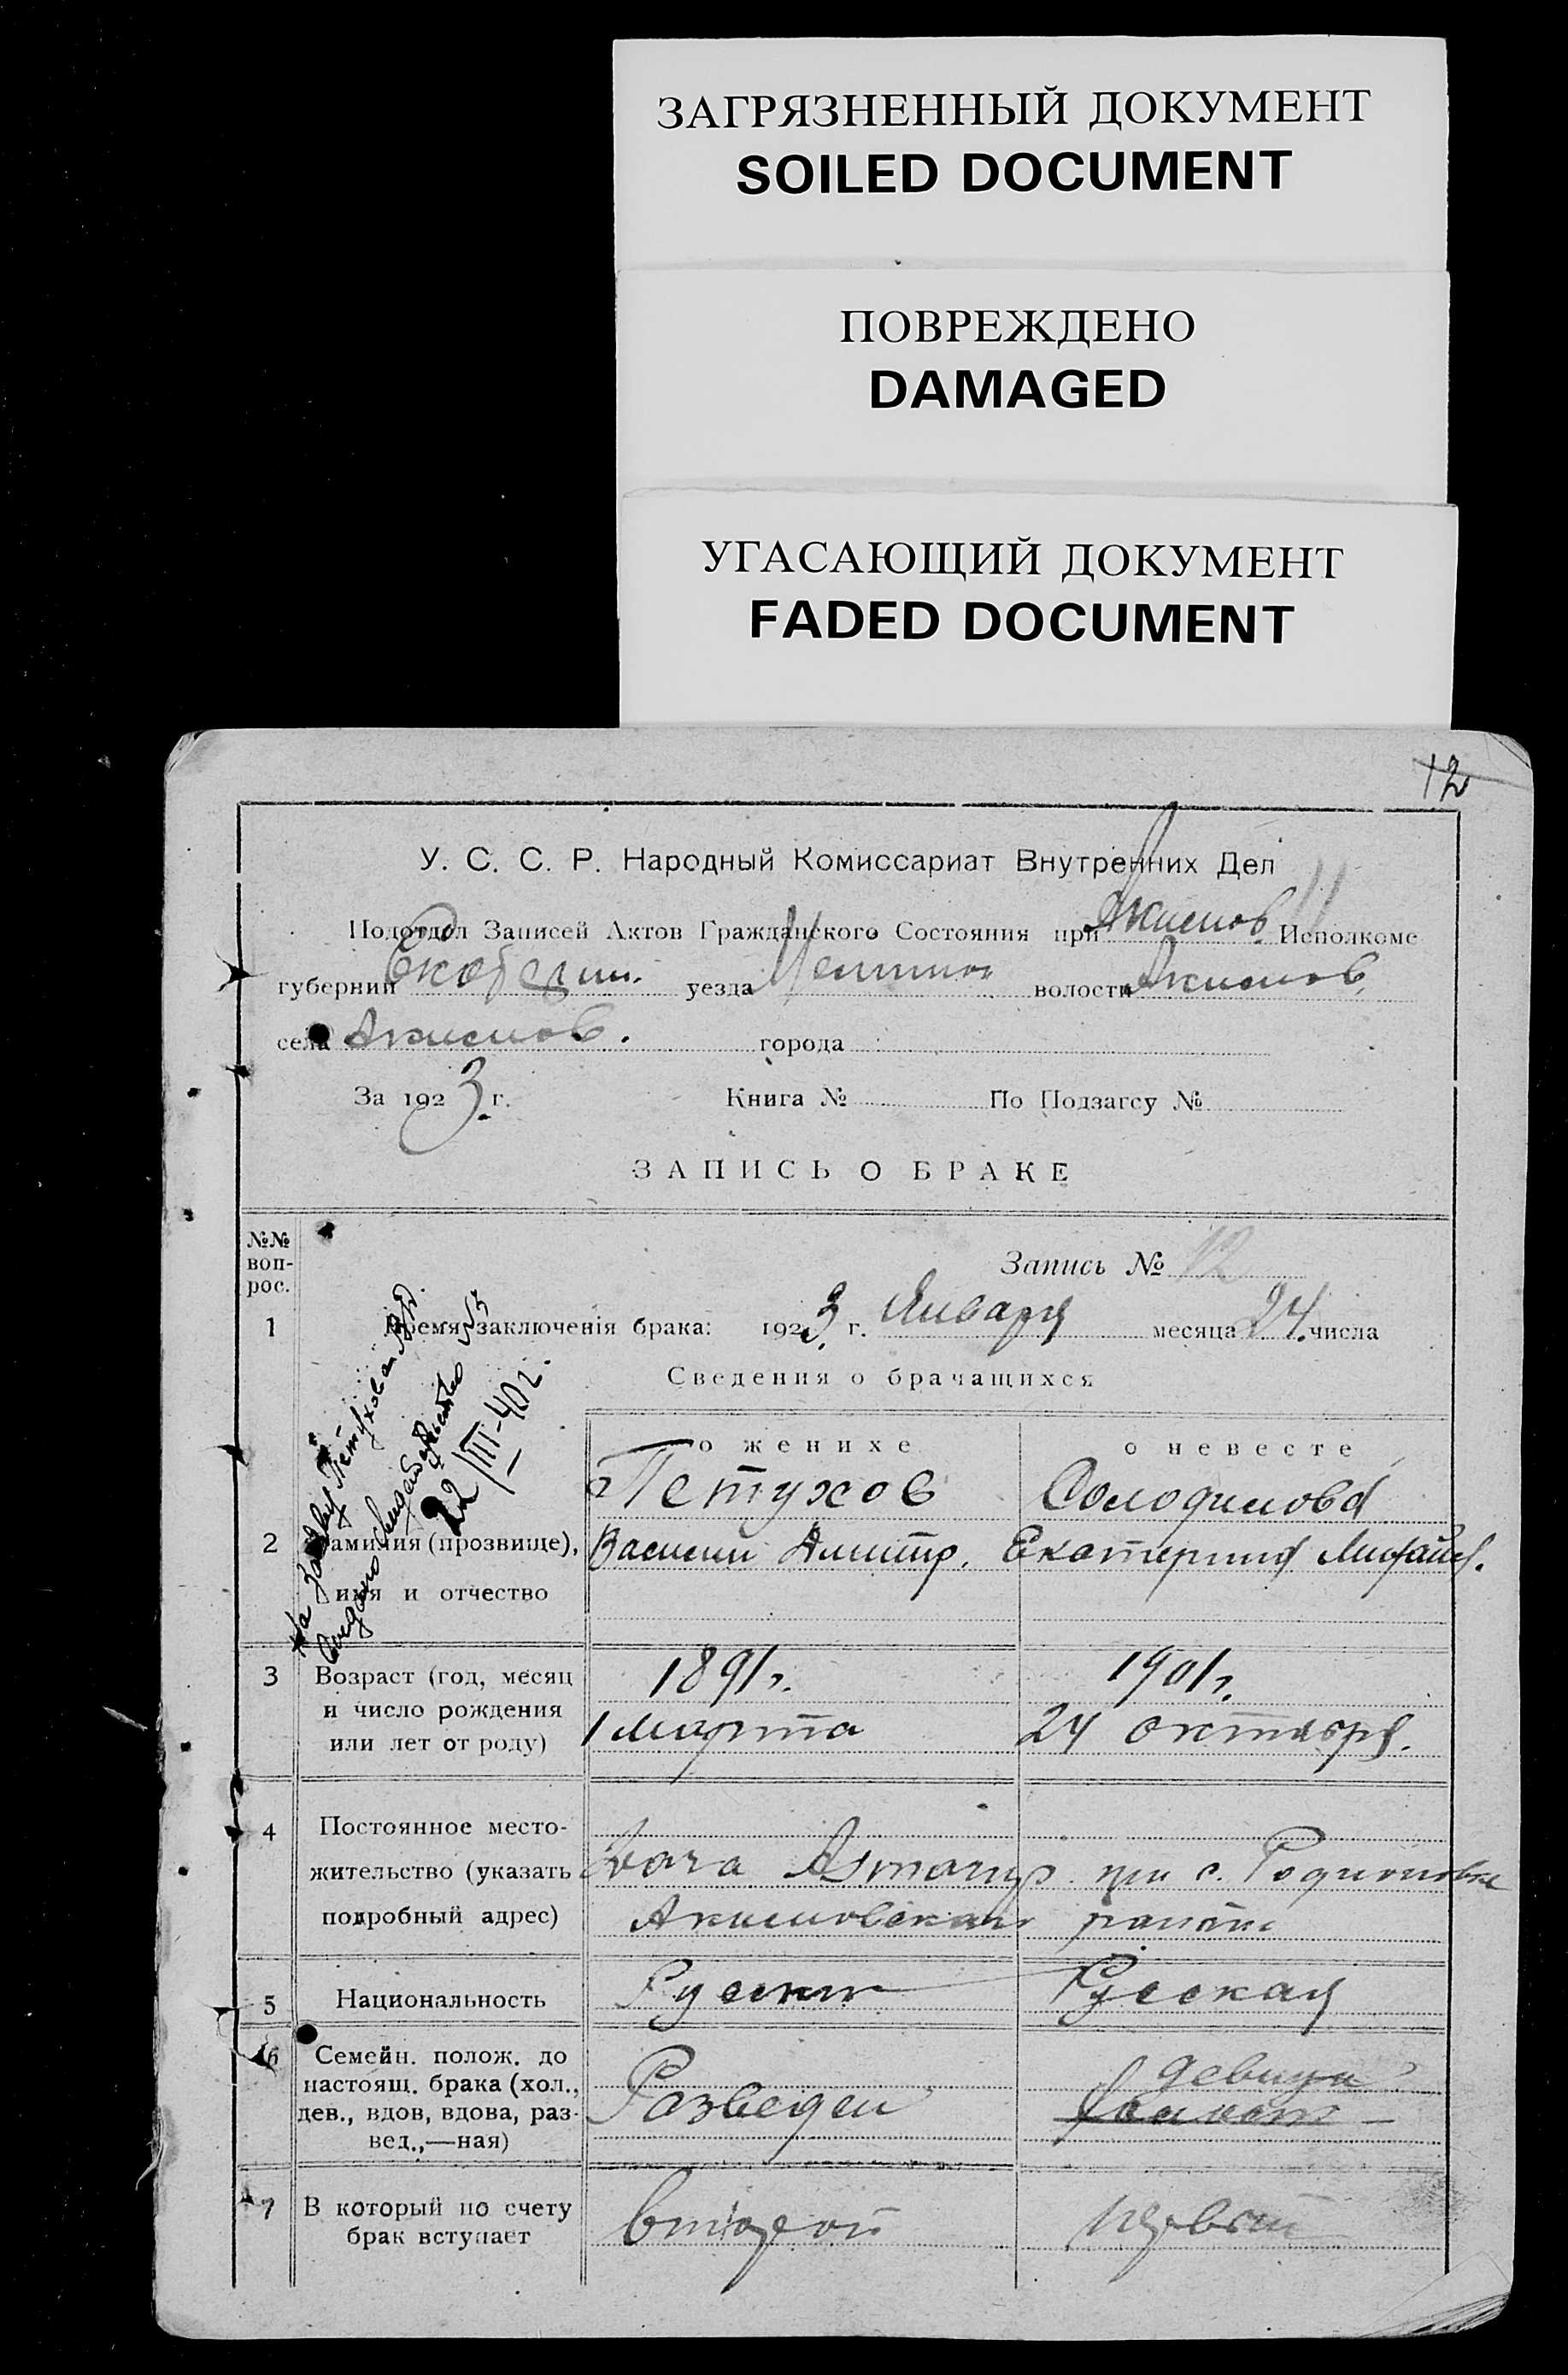 ЗАГРЯЗНЕННЫЙ ДОКУМЕНТ
SOILED DOCUMENT
ПОВРЕЖДЕНО
DAMAGED
УГАСАЮЩИЙ ДОКУМЕНТ
FADED DOCUMENT
12
У. С. С. Р. Народный Комиссариат Внутренних Дел
Подотдел Записей Актов Гражданского Состояния при Акимов. Исполкоме
губернии Екатерин. уезда волости Акимов.
села Акимов. города
За 1923 г. Книга № По Подзагсу №
ЗАПИСЬ О БРАКЕ
№№ вопрос.
Запись № 12
1 Время заключенія брака: 1923 г. Января месяца 24 числа
Сведения о брачащихся
о женихе о невесте
Петухов Солодилова
2 Фамилия (прозвище), Василий Дмитр. Екатерина Михайл.
имя и отчество
На Петухова
выдано свидетельство
22/III-40 г.
3 Возраст (год, месяц 1891 г. 1901 г.
и число рождения 1 марта 24 октября.
или лет от роду)
4 Постоянное место-
жительство (указать Дача при с. Родионовке
подробный адрес) Акимовская
5 Национальность Руский Русская
6 Семейн. полож. до девица
настоящ. брака (хол., Разведен
дев., вдов, вдова, раз-
вед.,—ная)
7 В который по счету второй первый
брак вступает